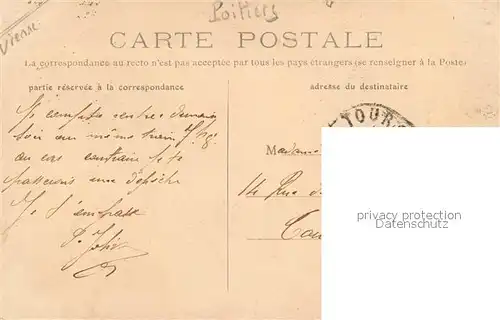 Poitiers
Vienne
CARTE POSTALE
La correspondance au recto n'est pas acceptée par tous les pays étrangers (se renseigner à la Poste)
partie réservée à la correspondance
adresse du destinataire
TOURS
Je compte rentrer demain
soir au même train
au cas contraire je te
passerais une dépêche
Je t'embrasse
Madame
14 Rue
privacy protection
Datenschutz